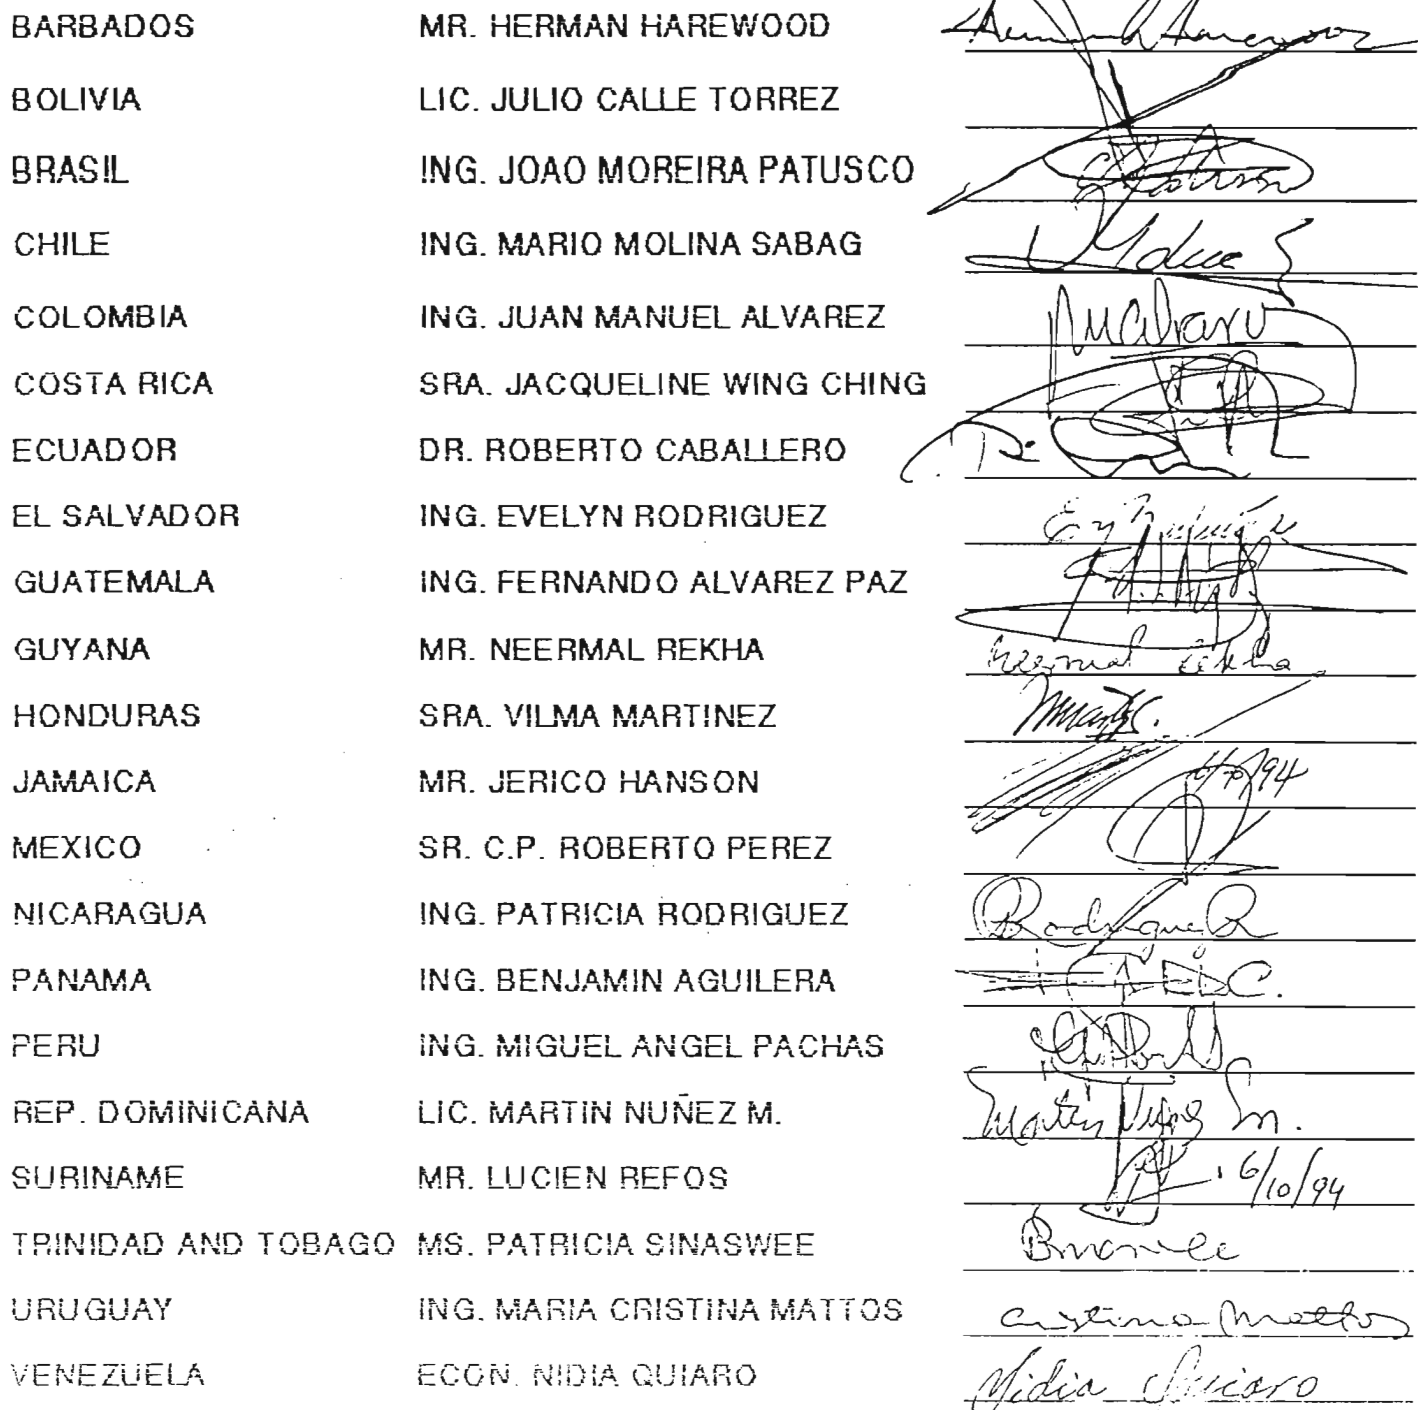 BARBADOS MR. HERMAN HAREWOOD
BOLIVIA LIC. JULIO CALLE TORREZ
BRASIL ING. JOAO MOREIRA PATUSCO
CHILE ING. MARIO MOLINA SABAG
COLOMBIA ING. JUAN MANUEL ALVAREZ
COSTA RICA SRA. JACQUELINE WING CHING
ECUADOR DR. ROBERTO CABALLERO
EL SALVADOR ING. EVELYN RODRIGUEZ
GUATEMALA ING. FERNANDO ALVAREZ PAZ
GUYANA MR. NEERMAL REKHA Neermal Rekha
HONDURAS SRA. VILMA MARTINEZ
JAMAICA MR. JERICO HANSON
MEXICO SR. C.P. ROBERTO PEREZ
NICARAGUA ING. PATRICIA RODRIGUEZ
PANAMA ING. BENJAMIN AGUILERA
PERU ING. MIGUEL ANGEL PACHAS
REP. DOMINICANA LIC. MARTIN NUÑEZ M. Martin Nuñez M.
SURINAME MR. LUCIEN REFOS 6/10/94
TRINIDAD AND TOBAGO MS. PATRICIA SINASWEE
URUGUAY ING. MARIA CRISTINA MATTOS Cristina Mattos
VENEZUELA ECON. NIDIA QUIARO Nidia Quiaro